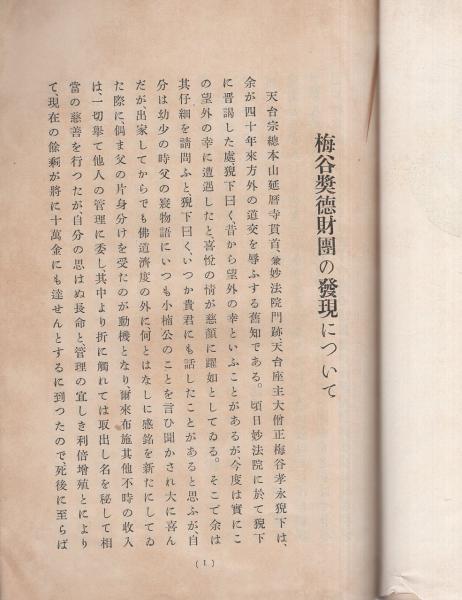 梅谷奬德財團の發現について
天台宗總本山延曆寺貫首、兼妙法院門跡天台座主大僧正梅谷孝永猊下は、
余が四十年來方外の道交を辱ふする舊知である。頃日妙法院に於て猊下
に晋謁した處猊下曰く、昔から望外の幸といふことがあるが、今度は實にこ
の望外の幸に遭遇したと、喜悅の情が慈顏に躍如としてゐる。そこで余は
其仔細を請問ふと、猊下曰く、いつか貴君にも話したことがあると思ふが、自
分は幼少の時父の寢物語にいつも小楠公のことを言ひ聞かされ大に喜ん
だが、出家してからでも佛道濟度の外に何とはなしに感銘を新たにしてゐ
た際に、偶ま父の片身分けを受たのが動機となり、爾來布施其他不時の收入
は、一切擧て他人の管理に委し、其中より折に觸れては取出し名を秘して相
當の慈善を行つたが、自分の思はぬ長命と、管理の宜しき利倍增殖とにより
て、現在の餘剩が將に十萬金にも達せんとするに到つたので、死後に至らば
(1)